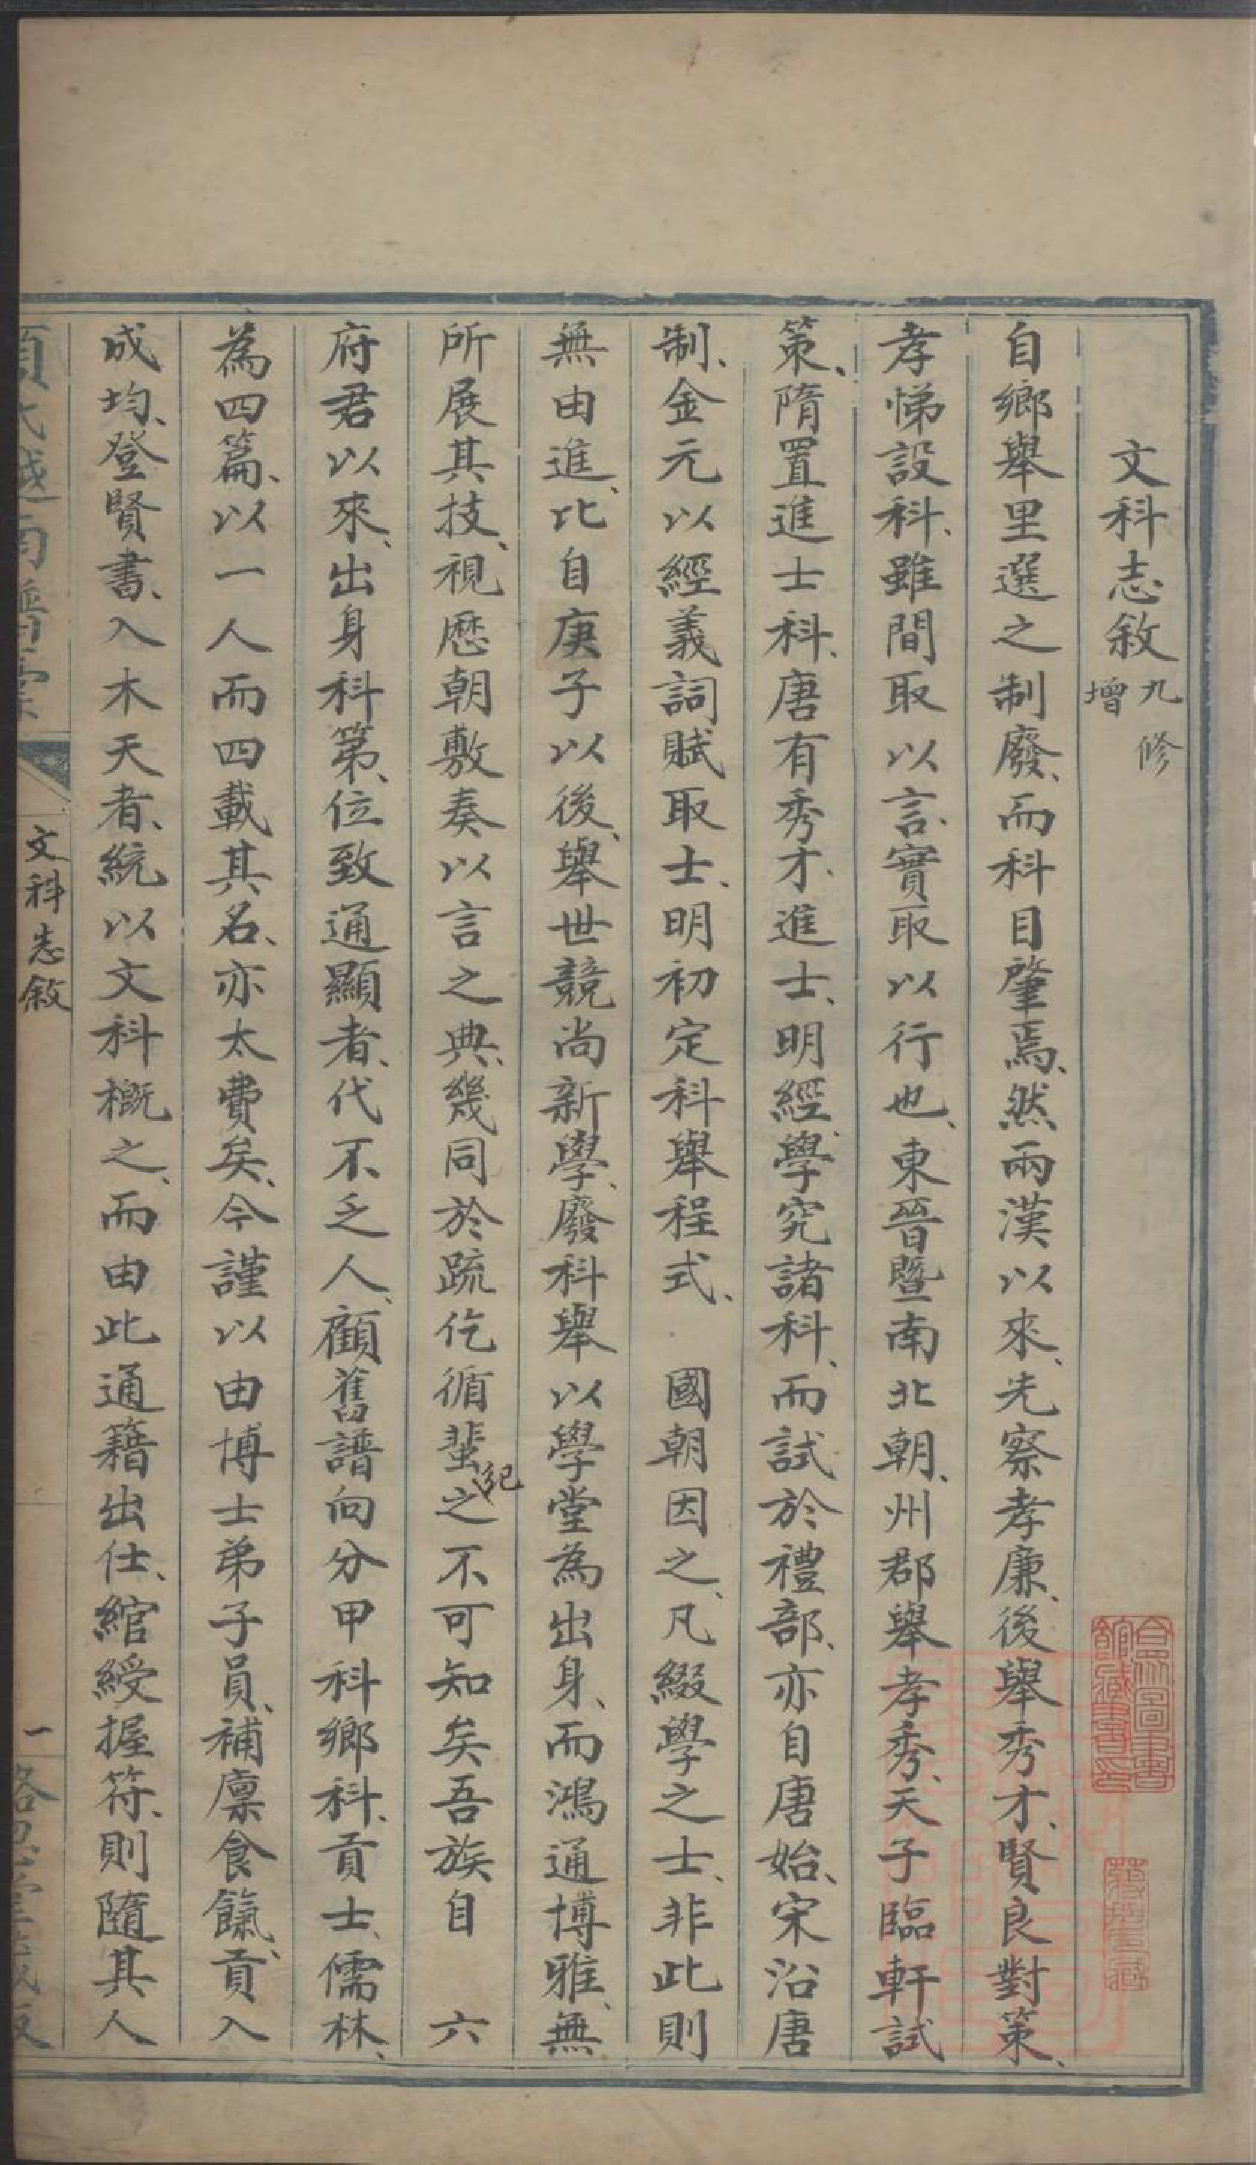 文科志敘 九修增
自鄉舉里選之制廢、而科目肇焉、然兩漢以來、先察孝廉、後舉秀才、賢良對策、
孝悌設科、雖間取以言、實取以行也、東晉暨南北朝、州郡舉孝秀、天子臨軒試
策、隋置進士科、唐有秀才、進士、明經學究諸科、而試於禮部、亦自唐始、宋沿唐
制、金元以經義詞賦取士、明初定科舉程式、 國朝因之、凡綴學之士、非此則
無由進、比自庚子以後、舉世競尚新學、廢科舉以學堂為出身、而鴻通博雅、無
所展其技、視歷朝敷奏以言之典、幾同於疏仡循蜚紀之不可知矣吾族自 六
府君以來、出身科第、位致通顯者、代不乏人、顧舊譜向分甲科鄉科、貢士、儒林、
為四篇、以一人而四載其名、亦太費矣、今謹以由博士弟子員、補廩食餼、貢入
成均、登賢書、入木天者、統以文科概之、而由此通籍出仕、綰綬握符、則隨其人
文科志敘
一